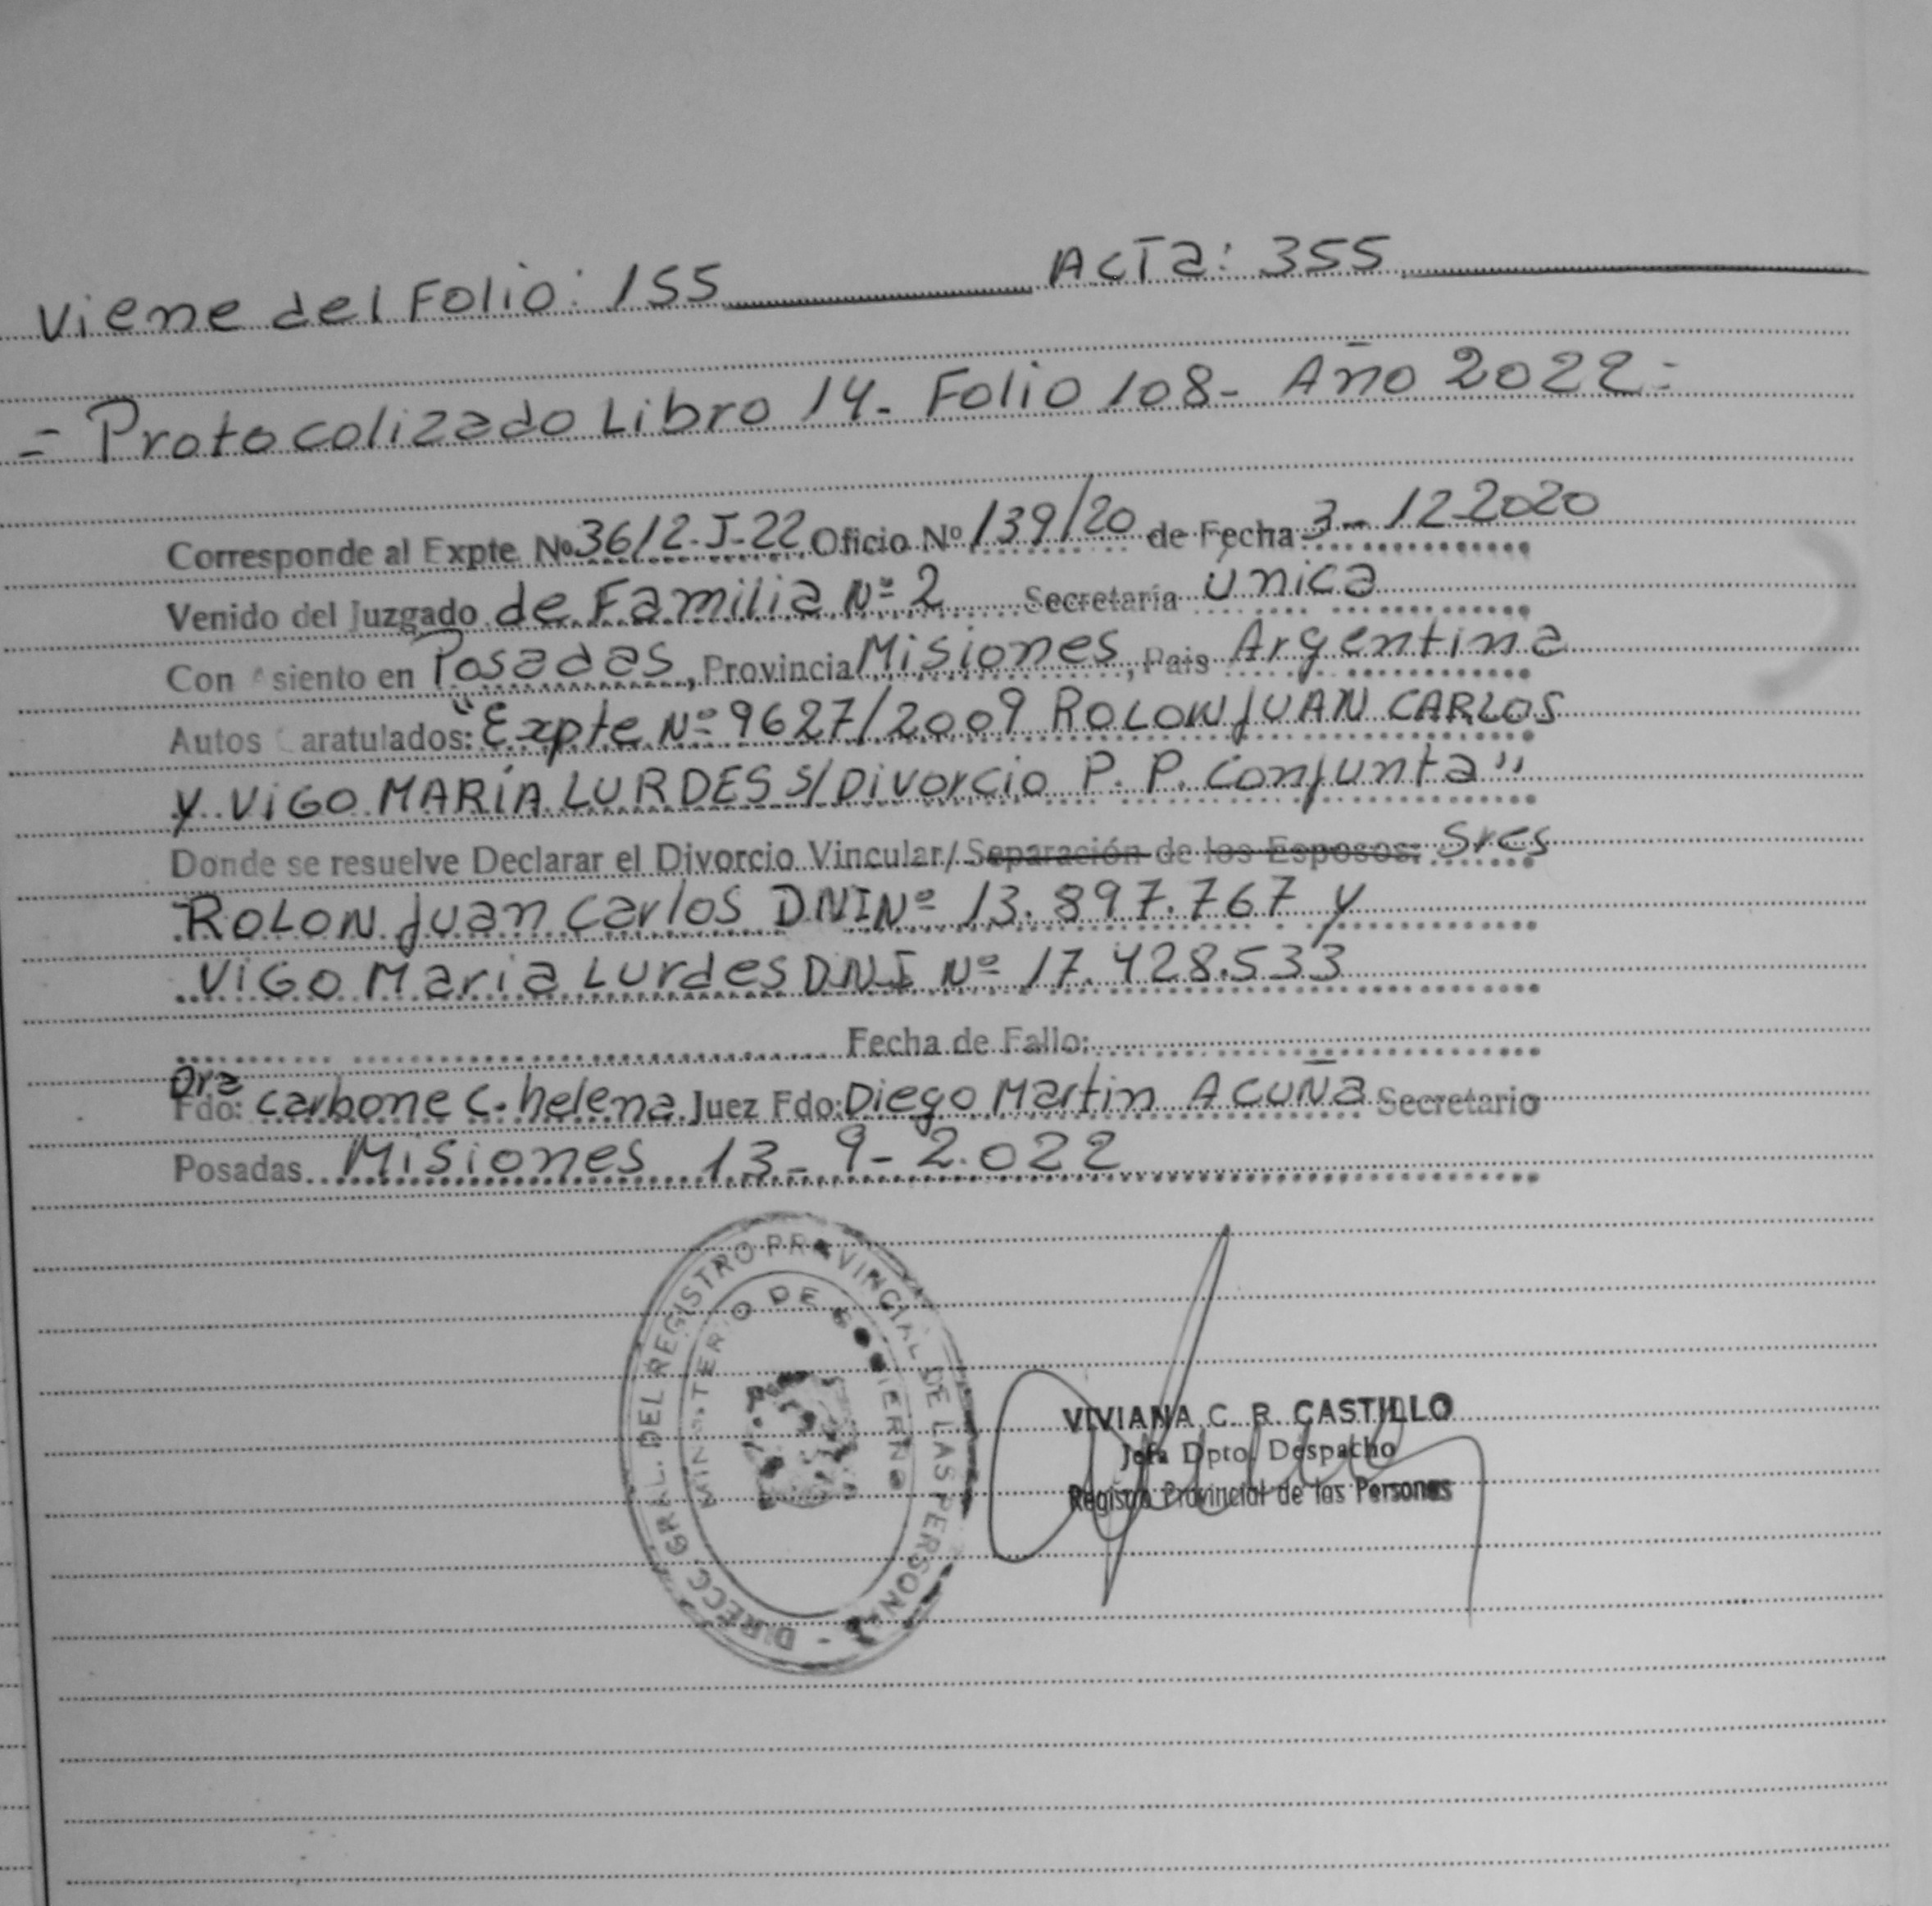 Viene del Folio: 155 Acta: 355
= Protocolizado Libro 14- Folio 108- Año 2022=
Corresponde al Expte Nº 3612-J-22 Oficio Nº 139/20 de Fecha 3-12-2020
Venido del Juzgado de Familia Nº 2 Secretaría única
Con Asiento en Posadas, Provincia Misiones, Pais Argentina
Autos Caratulados: "Expte Nº 9627/2009 ROLON JUAN CARLOS
y VIGO MARÍA LURDES S/Divorcio P. P. Conjunta"
Donde se resuelve Declarar el Divorcio Vincular/Separación de los Esposos: Sres
ROLON Juan Carlos DNI Nº 13.897.767 y
VIGO Maria Lurdes DNI Nº 17.428.533
Fecha de Fallo:
Dra
Fdo: Carbone C. helena Juez Fdo: Diego Martin Acuña Secretario
Posadas Misiones 13-9-2.022
DIRECC. GRAL. DEL REGISTRO PROVINCIAL DE LAS PERSONAS -
MINISTERIO DE GOBIERNO
VIVIANA C. R. CASTILLO
Jefa Dpto. Despacho
Registro Provincial de las Personas